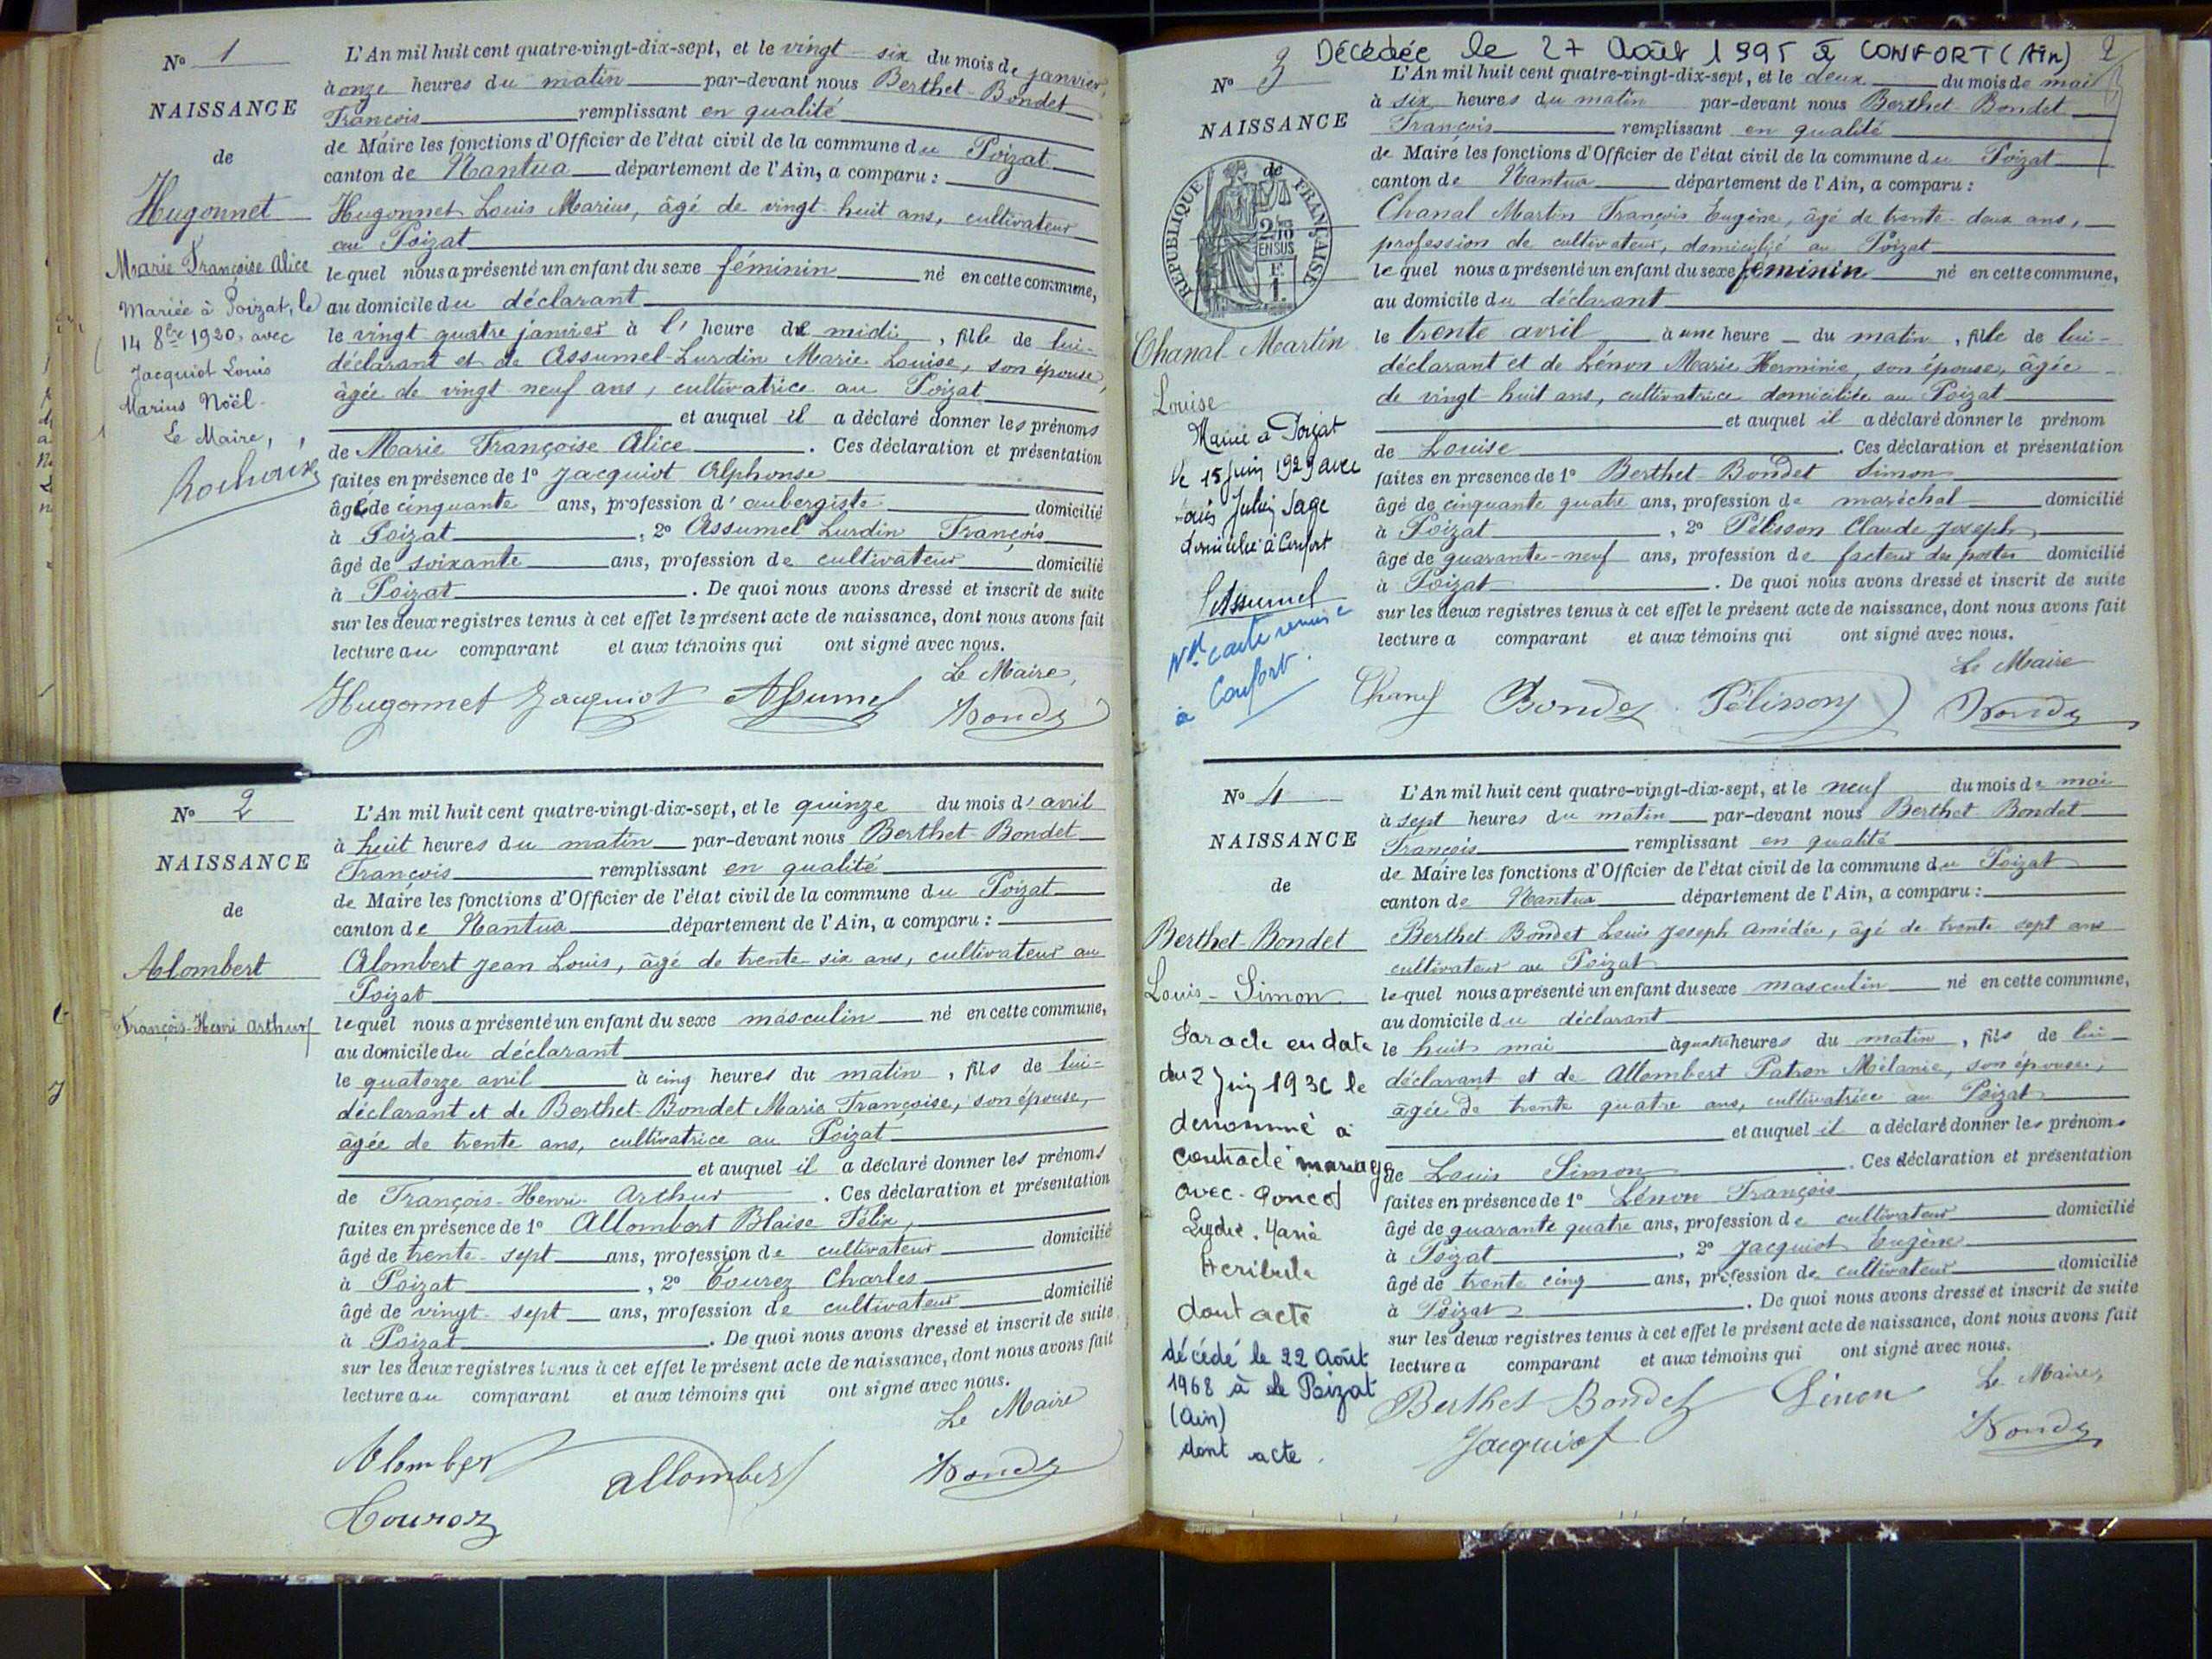 No 1
NAISSANCE
de
Hugonnet
Marie Françoise Alice
Mariée à Poizat, le
14 8bre 1920, avec
Jacquiot Louis
Marius Noël.
Le Maire,
L'An mil huit cent quatre-vingt-dix-sept, et le vingt-six du mois de janvier,
à onze heures du matin par-devant nous Berthet-Bondet
François remplissant en qualité
de Maire les fonctions d'Officier de l'état civil de la commune du Poizat
canton de Nantua département de l'Ain, a comparu :
Hugonnet Louis Marius, âgé de vingt-huit ans, cultivateur
au Poizat
lequel nous a présenté un enfant du sexe féminin né en cette commune,
au domicile du déclarant
le vingt quatre janvier à l'heure de midi, fille de lui-
déclarant et de Assumel-Lurdin Marie Louise, son épouse,
âgée de vingt neuf ans, cultivatrice au Poizat
et auquel il a déclaré donner les prénoms
de Marie Françoise Alice. Ces déclaration et présentation
faites en présence de 1o Jacquiot Alphonse
âgé de cinquante ans, profession d'aubergiste domicilié
à Poizat, 2o Assumel Lurdin François
âgé de soixante ans, profession de cultivateur domicilié
à Poizat. De quoi nous avons dressé et inscrit de suite
sur les deux registres tenus à cet effet le présent acte de naissance, dont nous avons fait
lecture au comparant et aux témoins qui ont signé avec nous.
Le Maire,
Hugonnet Jacquiot Assumel Bondet
No 2
NAISSANCE
de
Alombert
François-Henri Arthur
L'An mil huit cent quatre-vingt-dix-sept, et le quinze du mois d'avril
à huit heures du matin par-devant nous Berthet-Bondet
François remplissant en qualité
de Maire les fonctions d'Officier de l'état civil de la commune du Poizat
canton de Nantua département de l'Ain, a comparu :
Alombert Jean Louis, âgé de trente-six ans, cultivateur au
Poizat
lequel nous a présenté un enfant du sexe masculin né en cette commune,
au domicile du déclarant
le quatorze avril à cinq heures du matin, fils de lui-
déclarant et de Berthet-Bondet Marie Françoise, son épouse,
âgée de trente ans, cultivatrice au Poizat
et auquel il a déclaré donner les prénoms
de François-Henri-Arthur. Ces déclaration et présentation
faites en présence de 1o Allombert Blaise Félix,
âgé de trente-sept ans, profession de cultivateur domicilié
à Poizat, 2o Tourez Charles
âgé de vingt-sept ans, profession de cultivateur domicilié
à Poizat. De quoi nous avons dressé et inscrit de suite
sur les deux registres tenus à cet effet le présent acte de naissance, dont nous avons fait
lecture au comparant et aux témoins qui ont signé avec nous.
Le Maire
Alombert allombert Bondet
Décédée le 27 Août 1995 à CONFORT (Ain) 2
No 3
NAISSANCE
de
RÉPUBLIQUE FRANÇAISE
2/10
EN SUS
F.
1.
Chanal-Martin
Louise
Mariée à Poizat
le 15 Juin 1929 avec
Julien Sage
domicilié à Confort
Assumel
Nlle carte remise
à Confort.
L'An mil huit cent quatre-vingt-dix-sept, et le deux du mois de mai
à six heures du matin par-devant nous Berthet-Bondet
François remplissant en qualité
de Maire les fonctions d'Officier de l'état civil de la commune du Poizat
canton de Nantua département de l'Ain, a comparu :
Chanal Martin François Eugène, âgé de trente-deux ans,
profession de cultivateur, domicilié au Poizat
lequel nous a présenté un enfant du sexe féminin né en cette commune,
au domicile du déclarant
le trente avril à une heure du matin, fille de lui-
déclarant et de Lénon Marie Herminie, son épouse, âgée
de vingt-huit ans, cultivatrice domiciliée au Poizat
et auquel il a déclaré donner le prénom
de Louise. Ces déclaration et présentation
faites en présence de 1o Berthet-Bondet Simon
âgé de cinquante quatre ans, profession de maréchal domicilié
à Poizat, 2o Pélisson Claude Joseph,
âgé de quarante-neuf ans, profession de facteur des postes domicilié
à Poizat. De quoi nous avons dressé et inscrit de suite
sur les deux registres tenus à cet effet le présent acte de naissance, dont nous avons fait
lecture a comparant et aux témoins qui ont signé avec nous.
Le Maire
Chanal Bondet Pélisson Bondet
No 4
NAISSANCE
de
Berthet-Bondet
Louis-Simon
Par acte en date
du 2 Juin 1936 le
denommé a
contracté mariage
avec Poncet
Lydie. Marie
dont acte
décédé le 22 Août
1968 à le Poizat
(Ain)
dont acte.
L'An mil huit cent quatre-vingt-dix-sept, et le neuf du mois de mai
à sept heures du matin par-devant nous Berthet-Bondet
François remplissant en qualité
de Maire les fonctions d'Officier de l'état civil de la commune du Poizat
canton de Nantua département de l'Ain, a comparu :
Berthet-Bondet Louis Joseph Amédée, âgé de trente-sept ans
cultivateur au Poizat
lequel nous a présenté un enfant du sexe masculin né en cette commune,
au domicile du déclarant
le huit mai à quatre heures du matin, fils de lui
déclarant et de Allombert Patron Mélanie, son épouse,
âgée de trente quatre ans, cultivatrice au Poizat
et auquel il a déclaré donner les prénoms
de Louis Simon. Ces déclaration et présentation
faites en présence de 1o Lénon François
âgé de quarante quatre ans, profession de cultivateur domicilié
à Poizat, 2o Jacquiot Eugène
âgé de trente cinq ans, profession de cultivateur domicilié
à Poizat. De quoi nous avons dressé et inscrit de suite
sur les deux registres tenus à cet effet le présent acte de naissance, dont nous avons fait
lecture a comparant et aux témoins qui ont signé avec nous.
Le Maire,
Berthet Bondet Lénon
Jacquiot Bondet